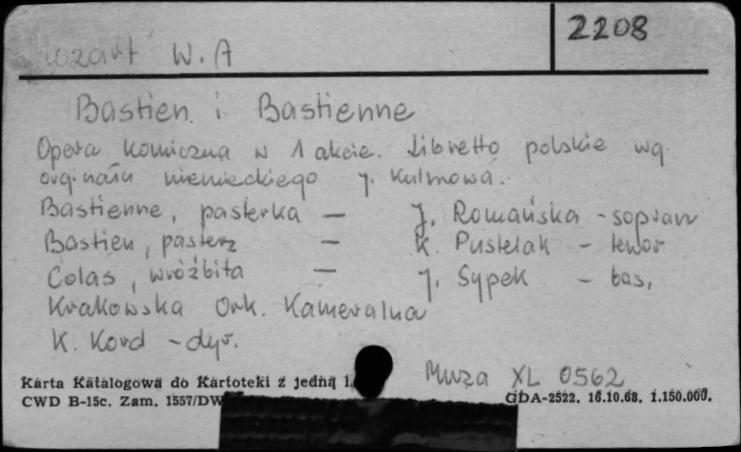 2208
Mozart W. A
Bastien i Bastienne
Opera komiczna w 1 akcie. Libretto polskie wg.
orginału niemieckiego J. Kulmowa.
Bastienne, pasterka — J. Romańska - sopran
Bastien, pasterz — K. Pustelak - tenor
Colas, wróżbita — J. Sypek - bas,
Krakowska Ork. Kameralna
K. Kord - dyr.
Muza XL 0562
Karta Katalogowa do Kartoteki z jedną
CWD B-15c. Zam. 1557/DW
GDA-2522. 16.10.68. 1.150.000.